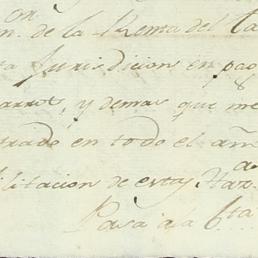 on
n. de la Renta del Ta
ta Jurisdicion en pao
arros, y demas que me
trado en todo el am
ilitacion de estas Haz.a
Pasa á la Cta